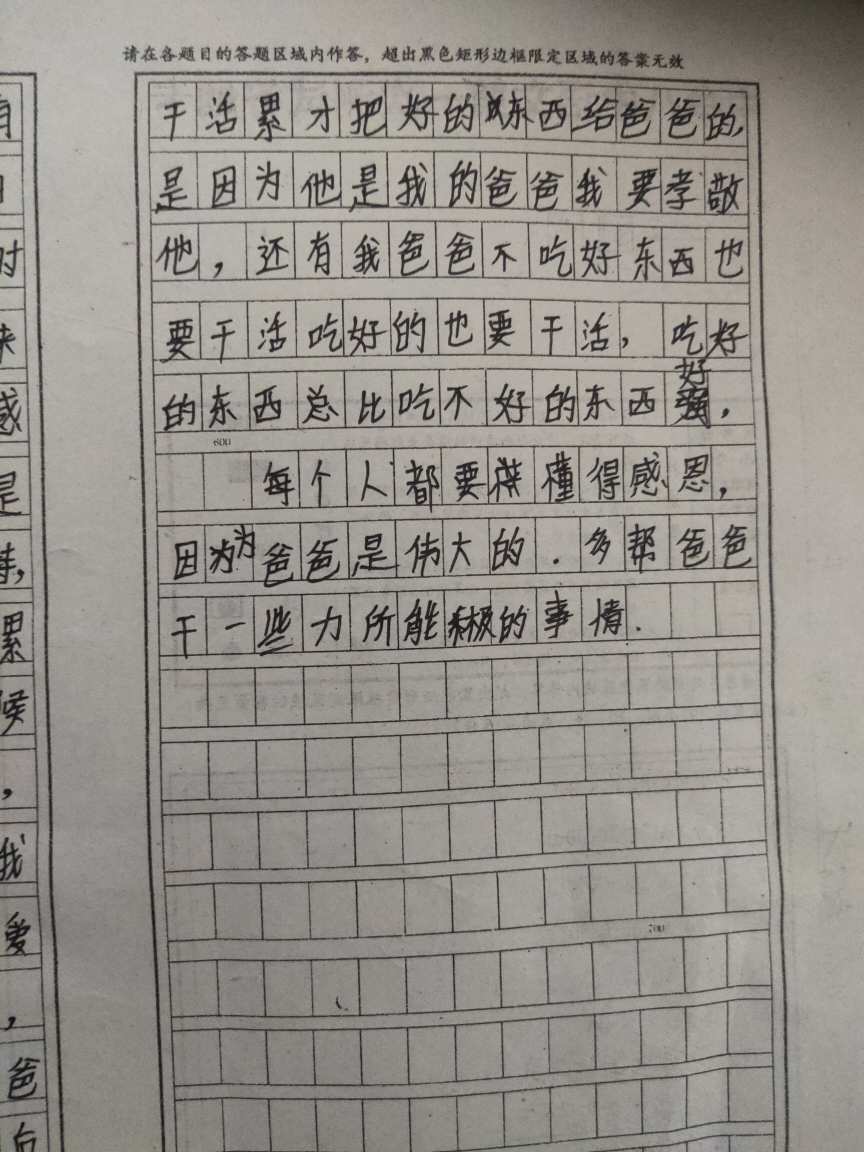 请在各题目的答题区域内作答，超出黑色矩形边框限定区域的答案无效
干活累才把好的东西给爸爸的，
是因为他是我的爸爸我要孝敬
他，还有我爸爸不吃好东西也
要干活吃好的也要干活，吃好
的东西总比吃不好的东西好，
600
每个人都要懂得感恩，
因为爸爸是伟大的．多帮爸爸
干一些力所能极的事情．
700
有
时
感
是
累
候
，
我
爱
，
爸